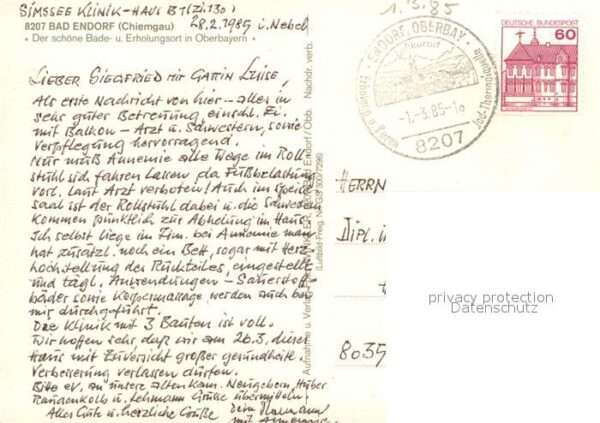 SIMSSEE KLINIK-HAUS B1 (Zi.130)
28.2.1985 i. Nebel
8207 BAD ENDORF (Chiemgau)
• Der schöne Bade- u. Erholungsort in Oberbayern •
LIEBER SIEGFRIED mit GATTIN LUISE,
Als erste Nachricht von hier – alles in
sehr guter Betreuung, einschl. Zi.
mit Balkon – Arzt u. Schwestern, sowie
Verpflegung hervorragend.
Nur muß Annemie alle Wege im Roll-
stuhl sich fahren lassen, da Fußbelastung
vorl. laut Arzt verboten! Auch im Speise-
saal ist der Rollstuhl dabei u. die Schwestern
kommen pünktlich zur Abholung im Haus.
Ich selbst liege im Zim. bei Annemie man
hat zusätzl. noch ein Bett, sogar mit Herz-
hochstellung des Rückteiles, eingestellt
und tägl. Anwendungen – Sauerstoff-
bäder sowie Körpermassage werden auch bei
mir durchgeführt.
Die Klinik mit 3 Bauten ist voll.
Wir hoffen sehr, daß wir am 26.3. dieses
Haus mit Zuversicht großer gesundheitl.
Verbesserung verlassen dürfen.
Bitte ev. an unsere alten Kam. Neugeborn, Huber
u. Lehmann Grüße übermitteln.
Alles Gute u. herzliche Grüße Dein
mit Annemie
Aufnahme u. Verlag
ENDORF / Obb. Nachdr. verb.
(Luftbild-Freig. Nr. GS 300/7296)
1.3.85
ENDORF, OBERBAY.
Luftkurort
-1.-3.85-10
8207
DEUTSCHE BUNDESPOST
60
HERRN
DIPL. 
8035
privacy protection
Datenschutz